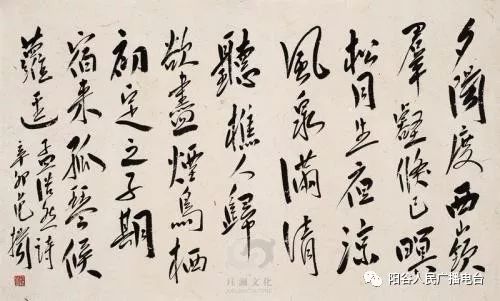 夕陽度西嶺
羣壑倏已暝
松月生夜涼
風泉滿清
聽樵人歸
欲盡煙鳥栖
初定之子期
宿來孤琴候
蘿逕 孟浩然詩
辛卯
文化
阳谷人民广播电台